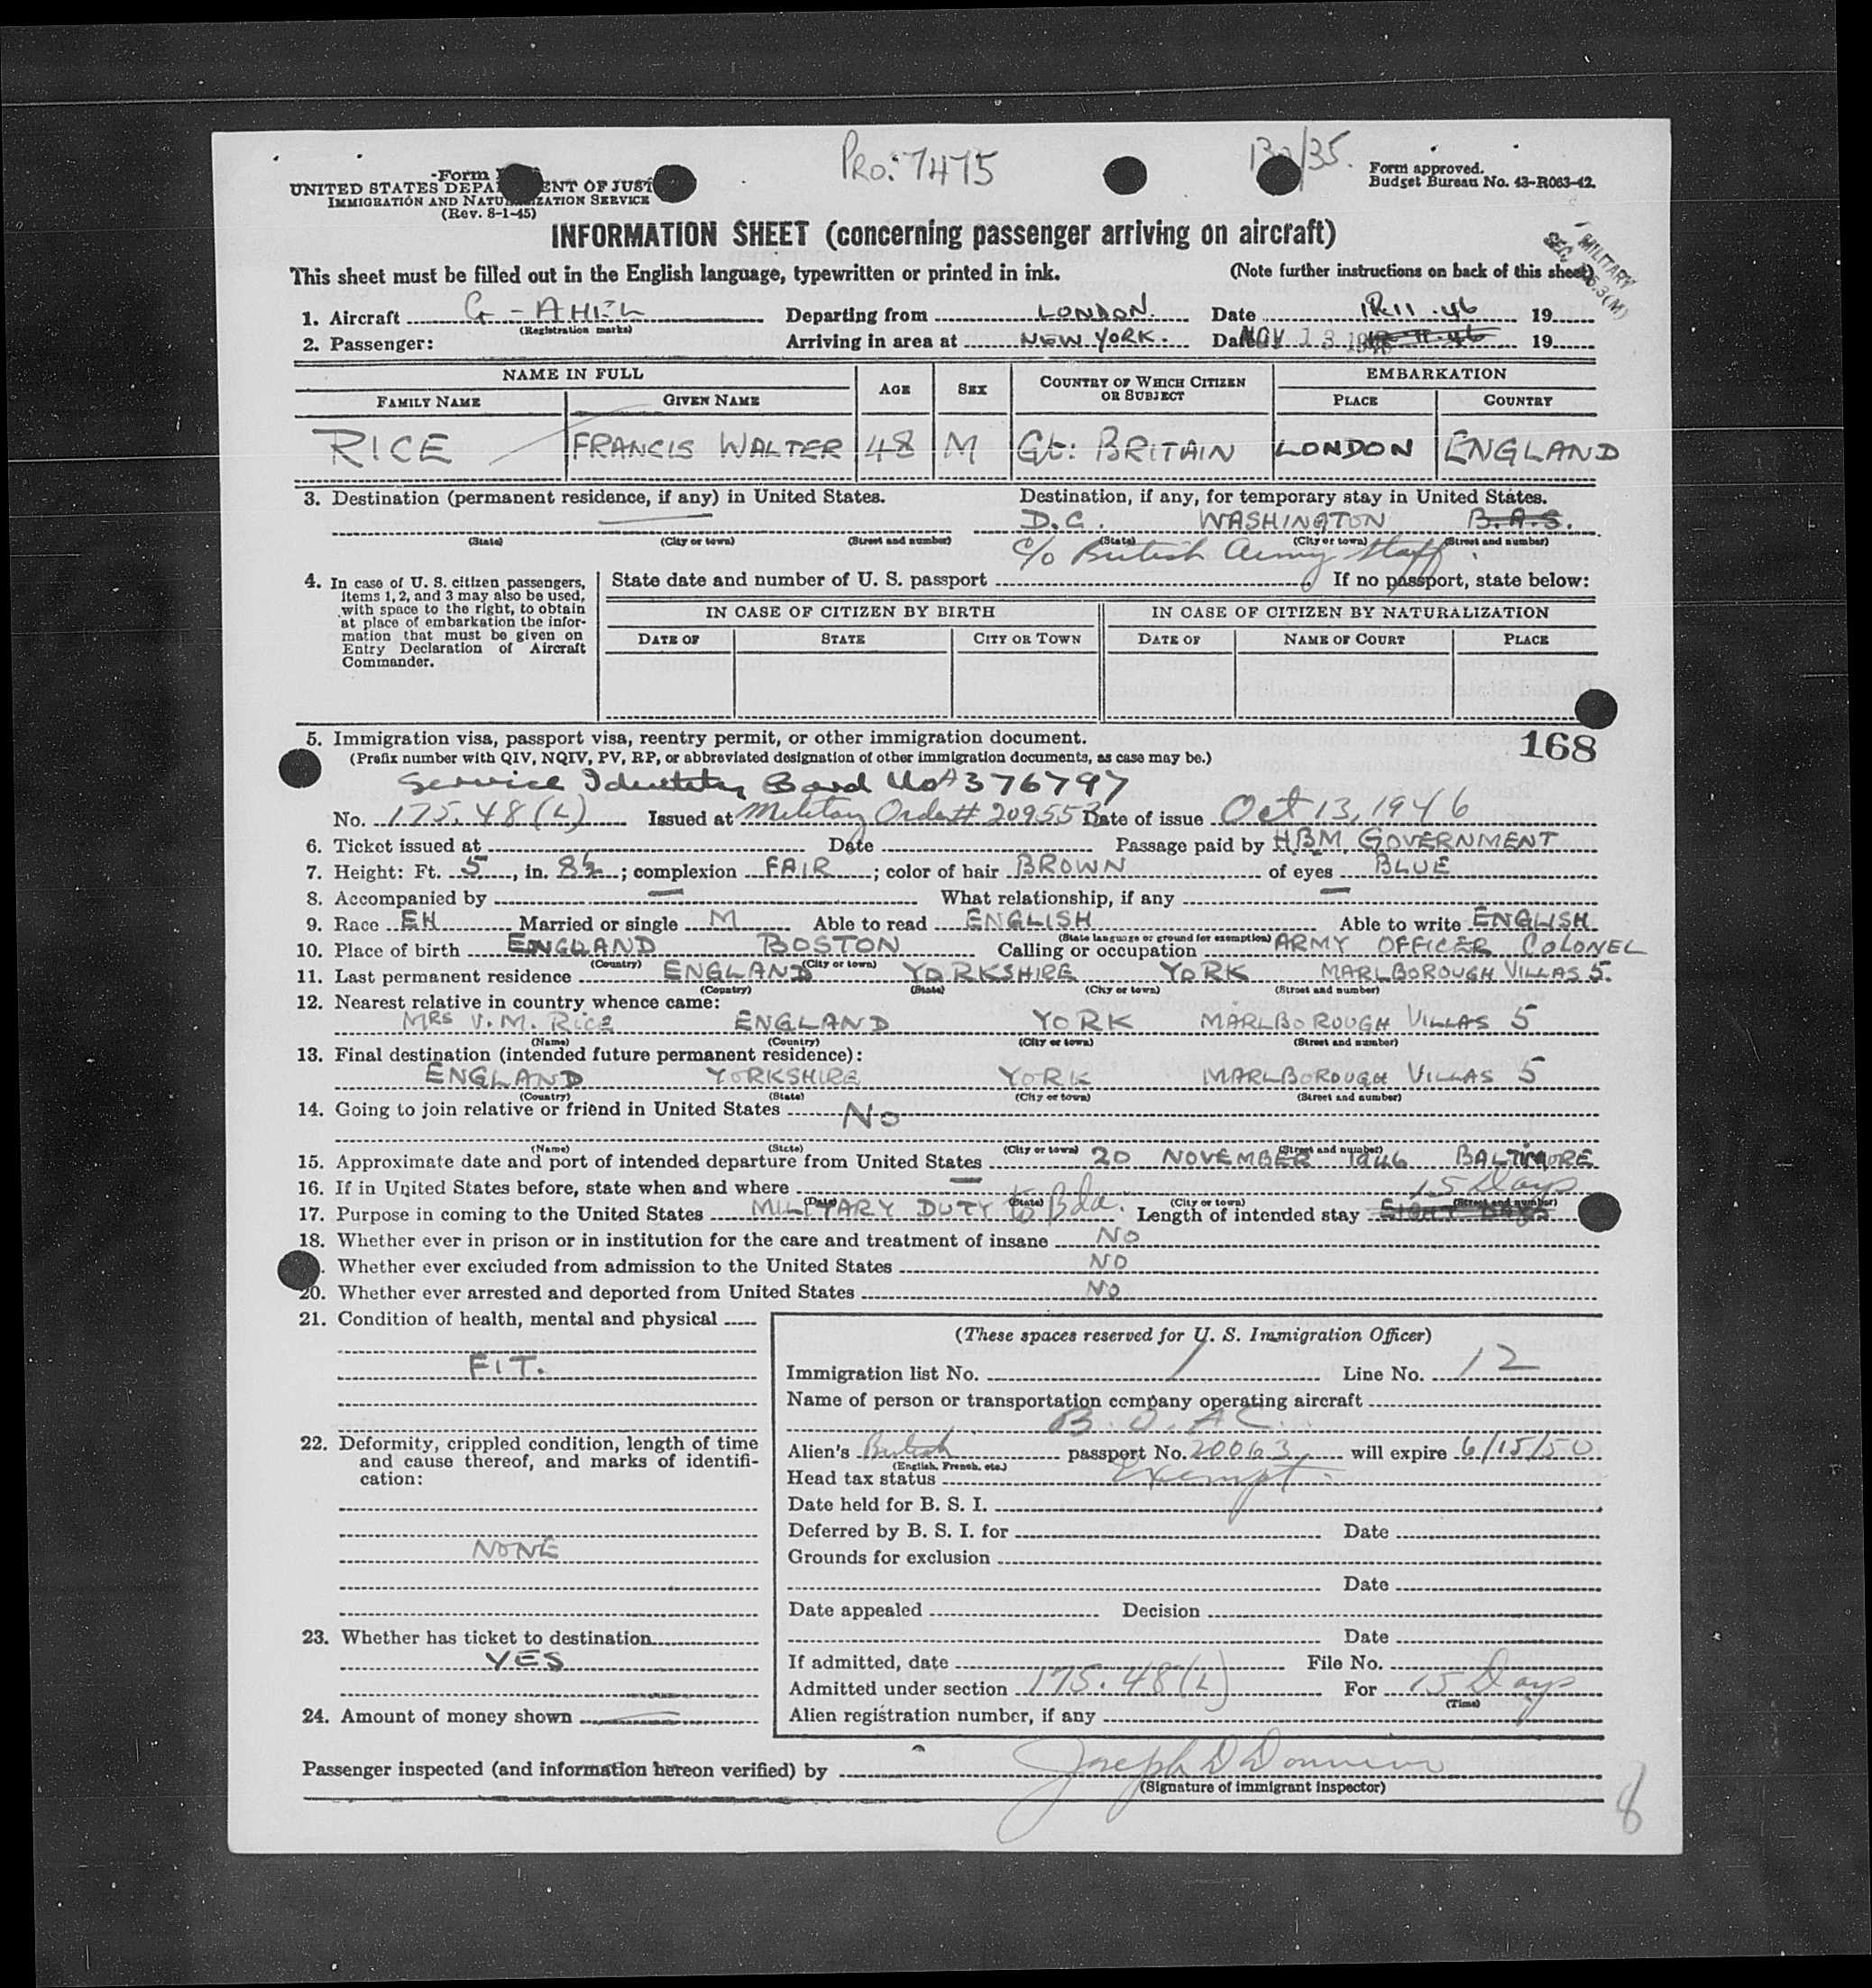 Pro: 7475
Form
UNITED STATES DEPA ENT OF JUST
IMMIGRATION AND NATU IZATION SERVICE
(Rev. 8-1-45)
Form approved.
Budget Bureau No. 43-R063-42.
INFORMATION SHEET (concerning passenger arriving on aircraft)
MILITARY
This sheet must be filled out in the English language, typewritten or printed in ink. (Note further instructions on back of this sheet)
1. Aircraft (Registration marks) Departing from LONDON. Date 19
2. Passenger: Arriving in area at NEW YORK. Date NOV 13 19
NAME IN FULL AGE SEX COUNTRY OF WHICH CITIZEN OR SUBJECT EMBARKATION
FAMILY NAME GIVEN NAME PLACE COUNTRY
RICE FRANCIS WALTER 48 M Gt. BRITAIN LONDON ENGLAND
3. Destination (permanent residence, if any) in United States. Destination, if any, for temporary stay in United States.
D.C. WASHINGTON B.A.S.
(State) (City or town) (Street and number) (State) (City or town) (Street and number)
c/o British Army Staff
4. In case of U. S. citizen passengers, items 1, 2, and 3 may also be used, with space to the right, to obtain at place of embarkation the information that must be given on Entry Declaration of Aircraft Commander.
State date and number of U. S. passport If no passport, state below:
IN CASE OF CITIZEN BY BIRTH IN CASE OF CITIZEN BY NATURALIZATION
DATE OF STATE CITY OR TOWN DATE OF NAME OF COURT PLACE
5. Immigration visa, passport visa, reentry permit, or other immigration document. 168
(Prefix number with QIV, NQIV, PV, RP, or abbreviated designation of other immigration documents, as case may be.)
Service Identity Card No A376797
No. 175.48(L) Issued at Military Order# 209553 Date of issue Oct 13, 1946
6. Ticket issued at Date Passage paid by H.B.M. GOVERNMENT
7. Height: Ft. 5, in. 8½; complexion FAIR; color of hair BROWN of eyes BLUE
8. Accompanied by — What relationship, if any —
9. Race EH Married or single M Able to read ENGLISH Able to write ENGLISH
(State language or ground for exemption)
10. Place of birth ENGLAND BOSTON Calling or occupation ARMY OFFICER COLONEL
(Country) (City or town)
11. Last permanent residence ENGLAND YORKSHIRE YORK MARLBOROUGH VILLAS 5.
(Country) (State) (City or town) (Street and number)
12. Nearest relative in country whence came:
MRS V. M. RICE ENGLAND YORK MARLBOROUGH VILLAS 5
(Name) (Country) (City or town) (Street and number)
13. Final destination (intended future permanent residence):
ENGLAND YORKSHIRE YORK MARLBOROUGH VILLAS 5
(Country) (State) (City or town) (Street and number)
14. Going to join relative or friend in United States NO
(Name) (State) (City or town) (Street and number)
15. Approximate date and port of intended departure from United States 20 NOVEMBER 1946 BALTIMORE
16. If in United States before, state when and where —
(Date) (State) (City or town) (Street and number)
15 Days
17. Purpose in coming to the United States MILITARY DUTY to Bda. Length of intended stay EIGHT DAYS
18. Whether ever in prison or in institution for the care and treatment of insane NO
. Whether ever excluded from admission to the United States NO
20. Whether ever arrested and deported from United States NO
21. Condition of health, mental and physical
FIT.
22. Deformity, crippled condition, length of time and cause thereof, and marks of identification:
NONE
23. Whether has ticket to destination
YES
24. Amount of money shown —
(These spaces reserved for U. S. Immigration Officer)
Immigration list No. 1 Line No. 12
Name of person or transportation company operating aircraft
B.O.A.C.
Alien's British passport No. 20063 will expire 6/15/50
(English, French, etc.)
Head tax status Exempt
Date held for B. S. I.
Deferred by B. S. I. for Date
Grounds for exclusion
Date
Date appealed Decision
Date
If admitted, date File No.
Admitted under section 175.48(L) For 15 Days
(Time)
Alien registration number, if any
Passenger inspected (and information hereon verified) by Joseph D
(Signature of immigrant inspector)
8